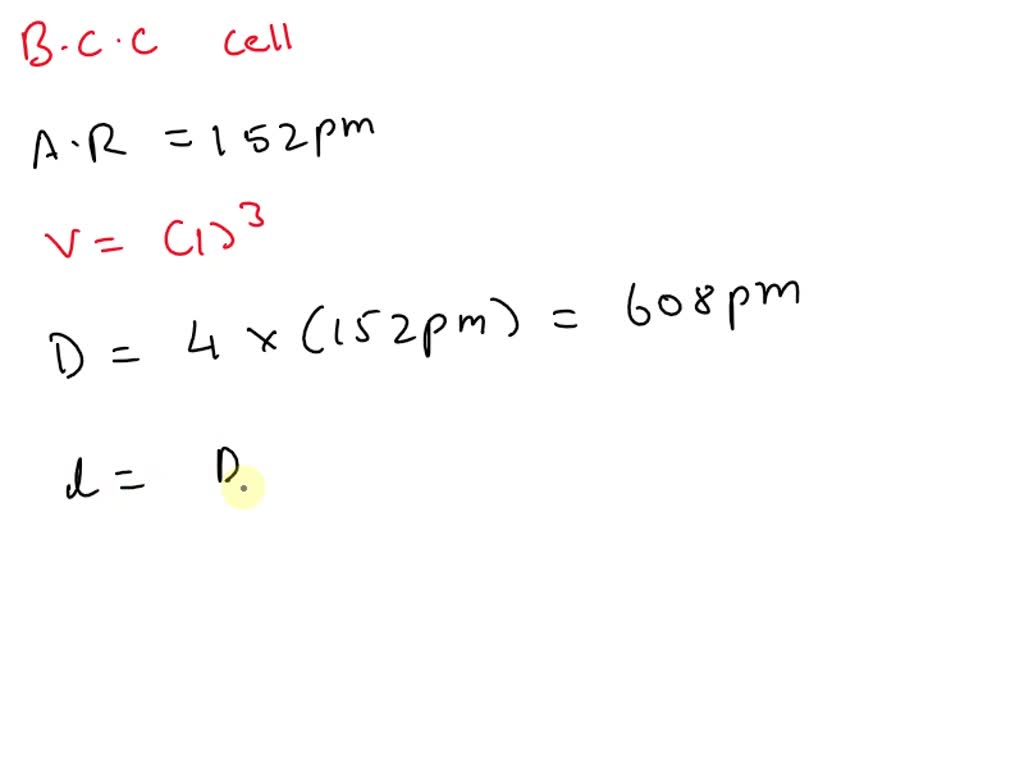 B.C.C cell
A.R = 152pm
V = (l)³
D = 4 × (152pm) = 608pm
l = D